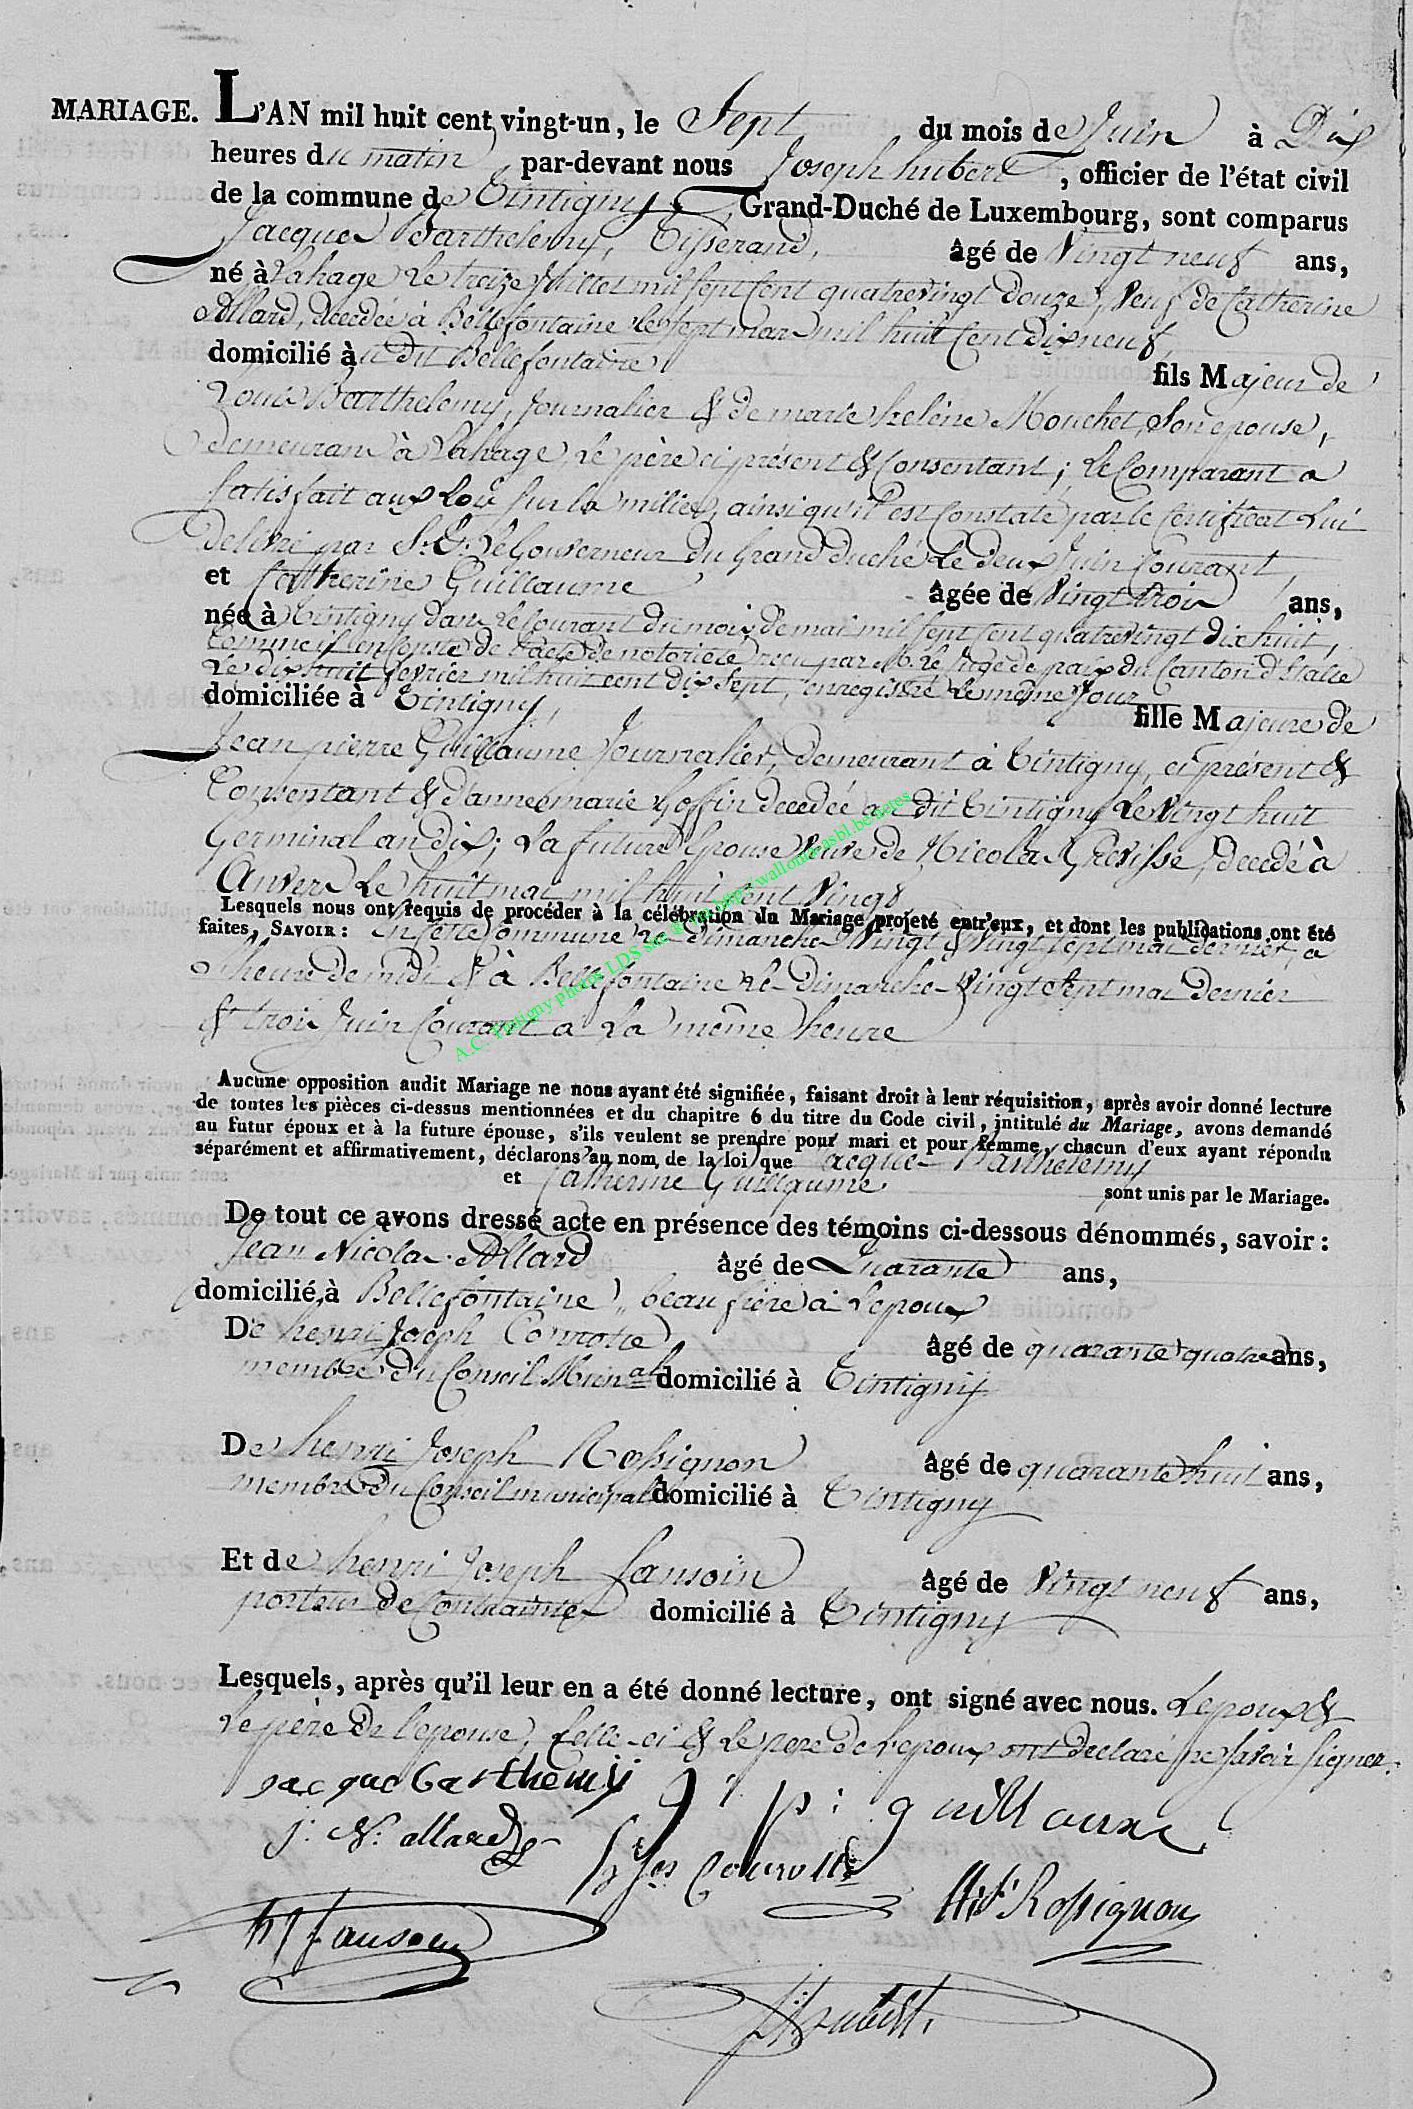 MARIAGE. L'AN mil huit cent vingt-un, le Sept du mois de Juin à Dix
heures du matin par-devant nous Joseph hubert, officier de l'état civil
de la commune de Tintigny, Grand-Duché de Luxembourg, sont comparus
Jacques Barthelemy, Tisserand, âgé de Vingt neuf ans,
né à Lahage Le treize Juillet mil sept Cent quatrevingt douze, Veuf de Catherine
Allard, décedée à Bellefontaine le sept mars mil huit Cent dix neuf,
domicilié à u dit Bellefontaine fils Majeur de
Louis Barthelemy, Journalier & de marie helène Mouchet, Son epouse,
demeurant à Lahage, Le père ci présent & Consentant; Le Comparant a
Satisfait aux Loix sur la milice, ainsi qu'il est Constaté par le Certificat Lui
délivré par S. E. Le Gouverneur du Grand duché Le deux Juin Courant,
et Catherine Guillaume âgée de Vingt trois ans,
née à Tintigny dans le Courant du mois de mai mil sept Cent quatrevingt dix huit,
Comme il en Conste de l'acte de notorieté recu par Mr. le Juge de paix du Canton d'Etalle
Le dix huit fevrier mil huit cent dix Sept, enregistré le même Jour
domiciliée à Tintigny, fille Majeure de
Jean pierre Guillaume Journalier, demeurant à Tintigny, ci présent &
Consentant & d'anne marie Goffin decedée au dit Tintigny Le Vingt huit
Germinal an dix; La future Epouse Veuve de Nicolas Grévisse, decedé à
Anvers Le huit mai mil huit cent Vingt
Lesquels nous ont requis de procéder à la célébration du Mariage projeté entr'eux, et dont les publications ont été
faites, SAVOIR : En cette Commune le dimanche Vingt & Vingt sept mai dernier, a
l'heure de midi & à Bellefontaine le Dimanche Vingt Sept mai Dernier
& trois Juin Courant a La même heure
A.C. Tintigny photos LDS site @ via http://wallonia-asbl.be/actes
Aucune opposition audit Mariage ne nous ayant été signifiée, faisant droit à leur réquisition, après avoir donné lecture
de toutes les pièces ci-dessus mentionnées et du chapitre 6 du titre du Code civil, intitulé du Mariage, avons demandé
au futur époux et à la future épouse, s'ils veulent se prendre pour mari et pour femme, chacun d'eux ayant répondu
séparément et affirmativement, déclarons au nom de la loi que Jacques Barthelemy
et Catherine Guillaume sont unis par le Mariage.
De tout ce avons dressé acte en présence des témoins ci-dessous dénommés, savoir :
Jean Nicolas Allard âgé de Quarante ans,
domicilié à Bellefontaine, beau frère à L'epoux
De henri Joseph Conrotte âgé de quarante quatre ans,
membre du Conseil Munal domicilié à Tintigny
De henri Joseph Rossignon âgé de quarante huit ans,
membre du Conseil municipal domicilié à Tintigny
Et de henri Joseph Jansoin âgé de Vingt neuf ans,
porteur de Contraintes domicilié à Tintigny
Lesquels, après qu'il leur en a été donné lecture, ont signé avec nous. L'epoux &
Le père de l'epouse, Celle-ci & Le père de l'epoux ont declaré ne savoir signer.
Jacques Barthemy J : p : guillaume
j. N. allard h Jos Conrotte
HJ Rossignon
HJ Jansoin
JHubert.